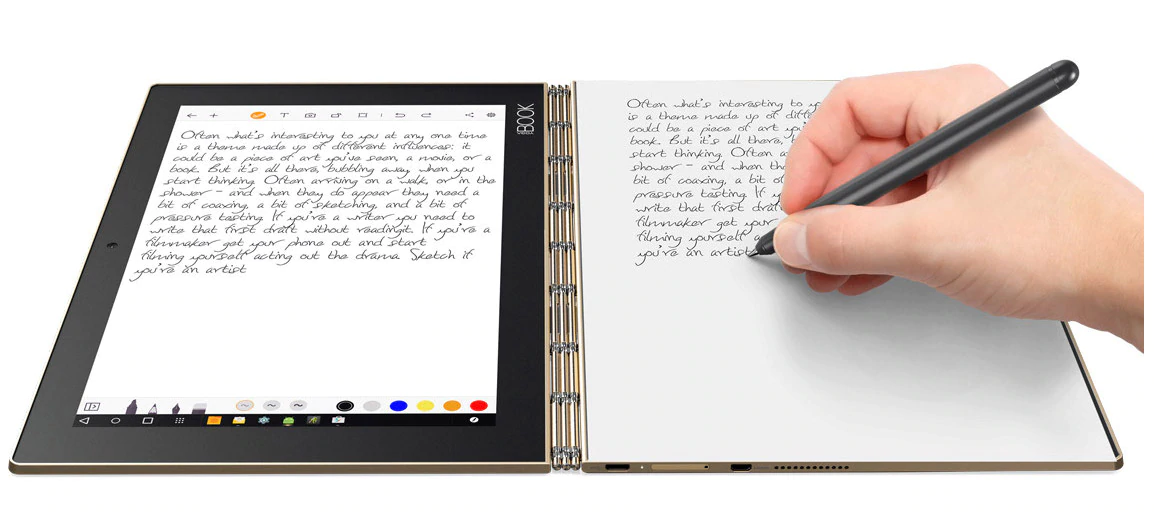 BOOK
Often what's interesting to you at any one time
is a theme made up of different influences: it
could be a piece of art you've seen, a movie, or a
book. But it's all there, bubbling away when you
start thinking. Often arriving on a walk, or in the
shower - and when they do appear they need a
bit of coaxing, a bit of sketching, and a bit of
pressure testing. If you're a writer you need to
write that first draft without readingit. If you're a
filmmaker get your phone out and start
filming yourself acting out the drama. Sketch if
you're an artist
Often what's interesting to
is a theme made up of
could be a piece of art
book. But it's all there,
start thinking. Often
shower - and when
bit of coaxing, a bit of
pressure testing. If
write that first draft
filmmaker get your
filming yourself
you're an artist